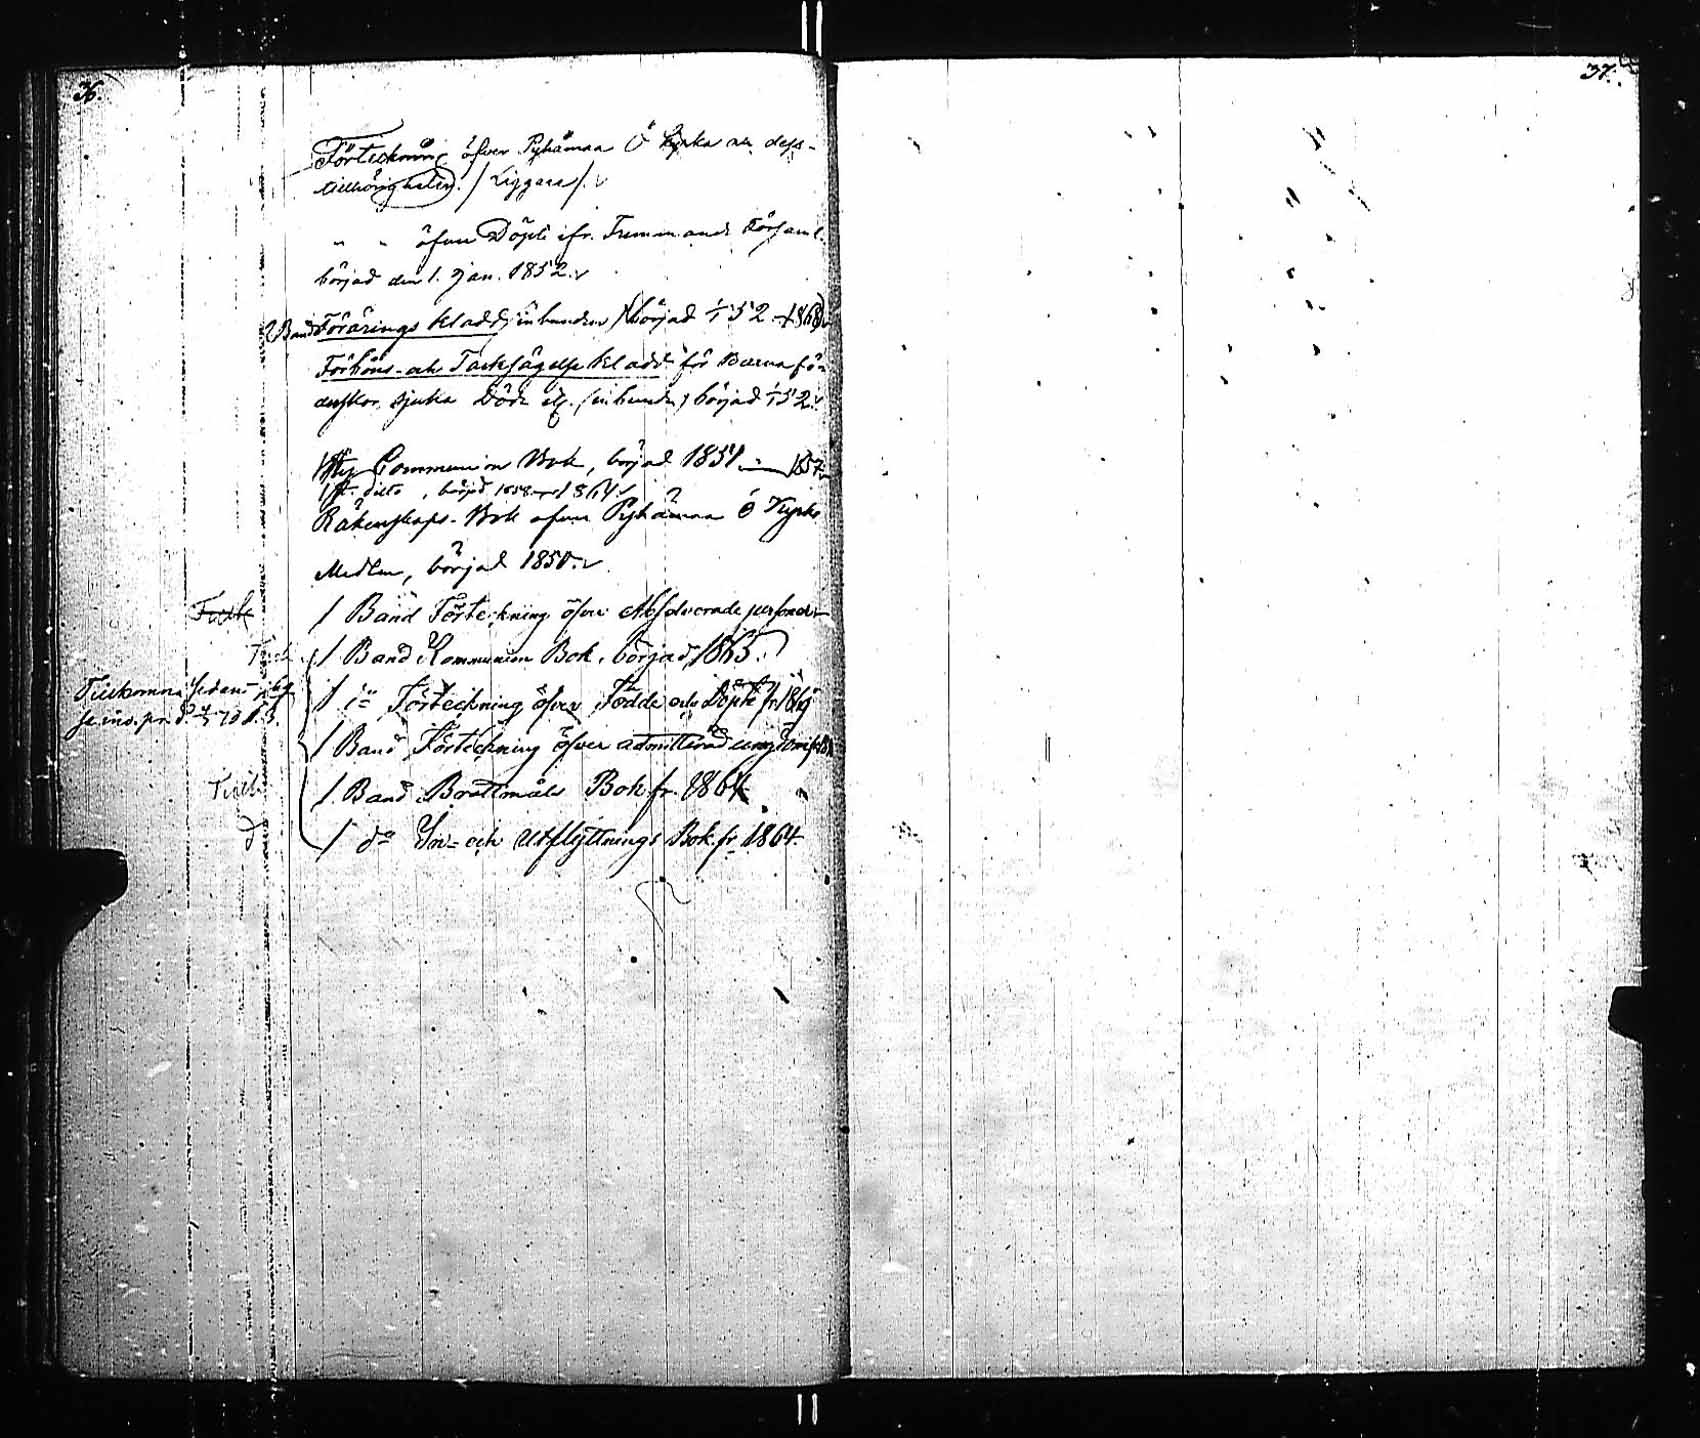 36.
37.
Förteckning öfver Pyhämaa Ö kyrka och dess
tillhörigheter. / Liggare /.
" " öfver Döpte ifr. Främmande Församl.
börjad den 1. Jan. 1852.
2 Band Förärings kladd, inbunden, börjad 1/1 52 - 1868
Förböns- och Tacksägelse kladd för Barnafö-
derskor, sjuka Döde etc. (inbunden) börjad 1/1 52.
Communion Bok, börjad 1851 - 1857
ditto, börjad 1858 - 1864
Räkenskaps-Bok öfver Pyhämaa Ö Kyrko
Medlen, börjad 1850.
1 Band Förteckning öfver Absolverade personer
1 Band Kommunion Bok, börjad 1865.
Tillkomna sedan
1 Förteckning öfver Födde och Döpte fr
1 Band Förteckning öfver admitterad ungdom
1 Band Brottmåls Bok fr. 1864
1 do In- och Utflyttnings Bok fr 1864.